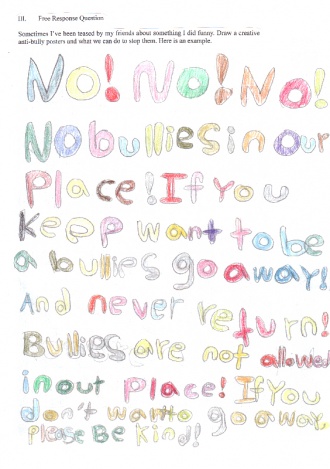 III. Free Response Question
Sometimes I've been teased by my friends about something I did funny. Draw a creative
anti-bully posters and what we can do to stop them. Here is an example.
No! No! No!
No bullies in our
Place! If you
keep want to be
a bullies go away!
And never return!
Bullies are not allowed
in out place! If You
don't wanto go away
Please Be kind!